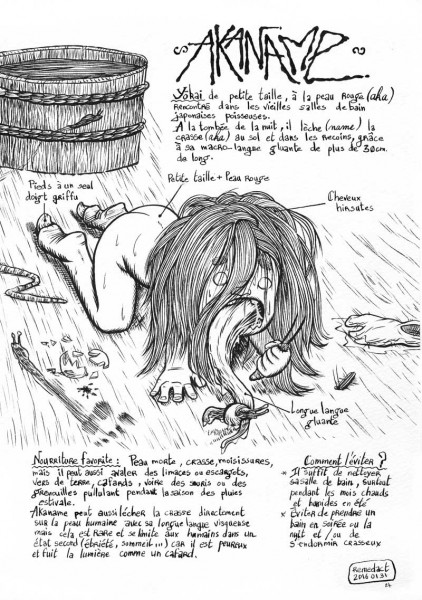 AKANAME
Yōkai de petite taille, à la peau rouge (aka)
rencontré dans les vieilles salles de bain
japonaises poisseuses.
A la tombée de la nuit, il lèche (name) la
crasse (aka) au sol et dans les recoins, grâce
à sa macro-langue gluante de plus de 30cm.
de long.
Petite taille + Peau Rouge
Pieds à un seul
doigt griffu
Cheveux
hirsutes
Longue langue
gluante
Nourriture favorite : Peau morte, crasse, moisissures,
mais il peut aussi avaler des limaces ou escargots,
vers de terre, cafards, voire des souris ou des
grenouilles pullulant pendant la saison des pluies
estivale.
Akaname peut aussi lécher la crasse directement
sur la peau humaine avec sa longue langue visqueuse
mais cela est rare et se limite aux humains dans un
état second (ébriété, sommeil...) car il est peureux
et fuit la lumière comme un cafard.
Comment l'éviter ?
* Il suffit de nettoyer
sa salle de bain, surtout
pendant les mois chauds
et humides en été
* Eviter de prendre un
bain en soirée ou la
nuit et/ou de
s'endormir crasseux
Renedact
2016 01 31